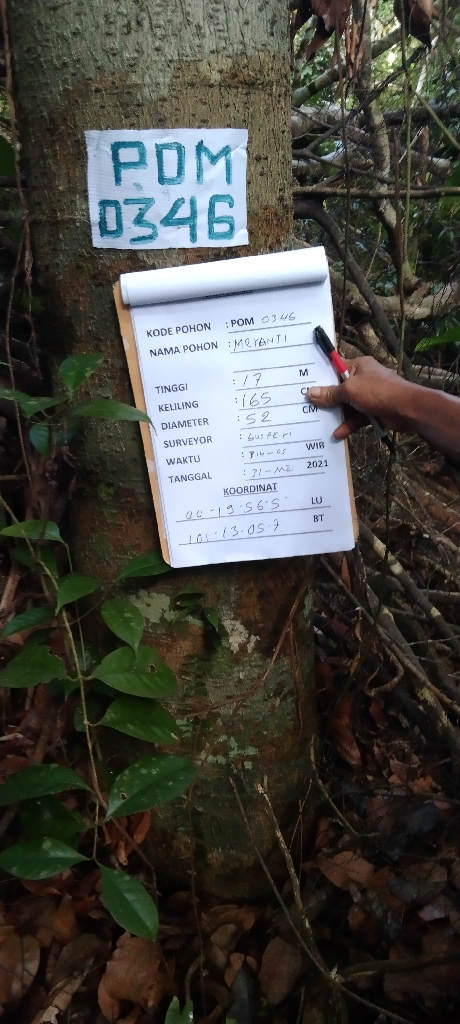 POM
0346
KODE POHON : POM 0346
NAMA POHON : MERANTI
TINGGI : 17 M
KELILING : 165 CM
DIAMETER : 52 CM
SURVEYOR :
WAKTU : WIB
TANGGAL : 31-ME 2021
KOORDINAT
00-19.56.5 LU
101.13.05.7 BT